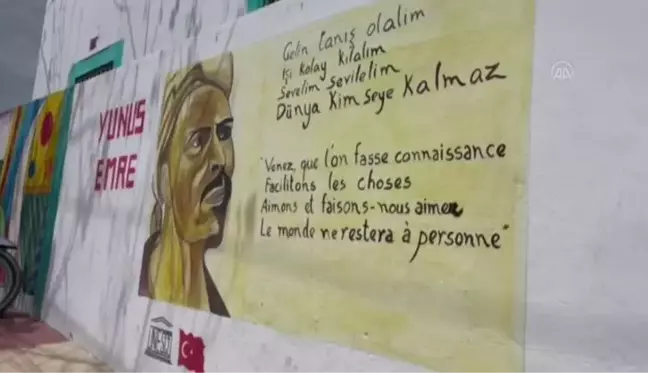 YUNUS
EMRE
Gelin tanış olalım
İşi Kolay Kılalım
Sevelim Sevilelim
Dünya Kimseye Kalmaz
"Venez, que l'on fasse connaissance
Facilitons les choses
Aimons et faisons-nous aimer
Le monde ne restera à personne"
UNESCO
AA